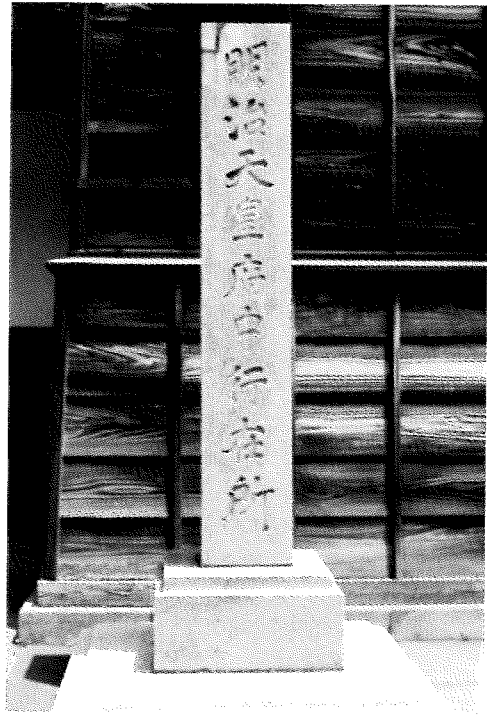 明治天皇府中行在所